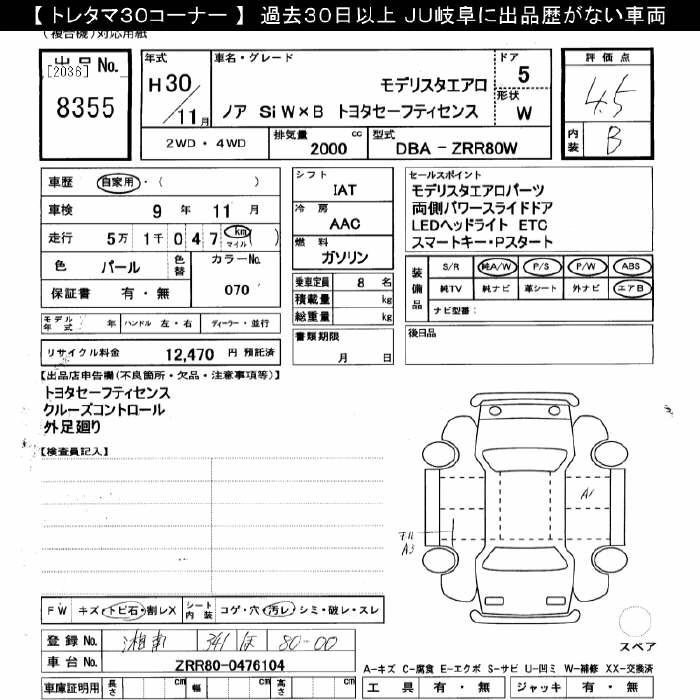 【 トレタマ30コーナー 】 過去30日以上 JU岐阜に出品歴がない車両
(複合機)対応用紙
出品 No.
[2036]
8355
年式
H 30
/ 11 月
車名・グレード
モデリスタエアロ
ノア Si W×B トヨタセーフティセンス
ドア
5
形状
W
評価点
4.5
内装
B
2WD・4WD
排気量
2000 cc
型式
DBA - ZRR80W
車歴 自家用・( )
車検 9 年 11 月
走行 5万 1千 0 4 7 km マイル ( )
色 パール 色替 カラーNo.
070
保証書 有・無
モデル年式 年 ハンドル 左・右 ディーラー・並行
リサイクル料金 12,470 円 預託済
シフト
IAT
冷房
AAC
燃料
ガソリン
乗車定員 8 名
積載量 kg
総重量 kg
書類期限
月 日
セールスポイント
モデリスタエアロパーツ
両側パワースライドドア
LEDヘッドライト ETC
スマートキー・Pスタート
装備品
S/R 純A/W P/S P/W ABS
純TV 純ナビ 革シート 外ナビ エアB
ナビ型番:
後日品
【出品店申告欄(不良箇所・欠品・注意事項等)】
トヨタセーフティセンス
クルーズコントロール
外足廻り
【検査員記入】
A1
A3
FW キズ・トビ石・割レX シート内装 コゲ・穴・汚レ・シミ・破レ・スレ
登録 No. 湘南 341 ほ 80-00
車台 No. ZRR80-0476104
車庫証明用 長さ cm 幅 cm 高さ cm
スペア
A-キズ C-腐食 E-エクボ S-サビ U-凹ミ W-補修 XX-交換済
工具 有・無 ジャッキ 有・無